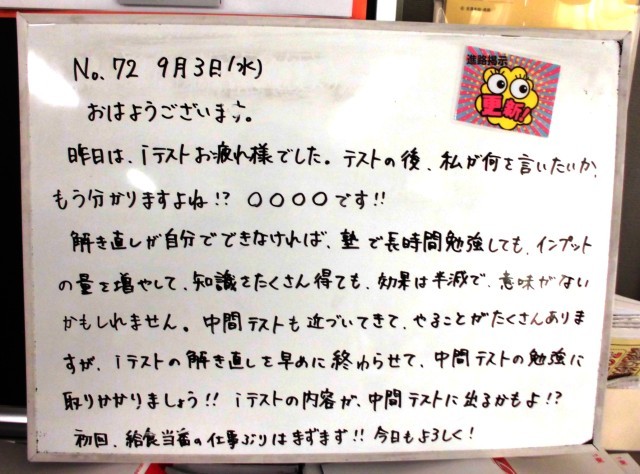 No.72 9月3日(水)
進路掲示
更新!
おはようございます。
昨日は、iテストお疲れ様でした。テストの後、私が何を言いたいか、
もう分かりますよね!? 〇〇〇〇です!!
解き直しが自分でできなければ、塾で長時間勉強しても、インプット
の量を増やして、知識をたくさん得ても、効果は半減で、意味がない
かもしれません。中間テストも近づいてきて、やることがたくさんありま
すが、iテストの解き直しを早めに終わらせて、中間テストの勉強に
取りかかりましょう!! iテストの内容が、中間テストに出るかもよ!?
初回、給食当番の仕事ぶりはまずまず!! 今日もよろしく!